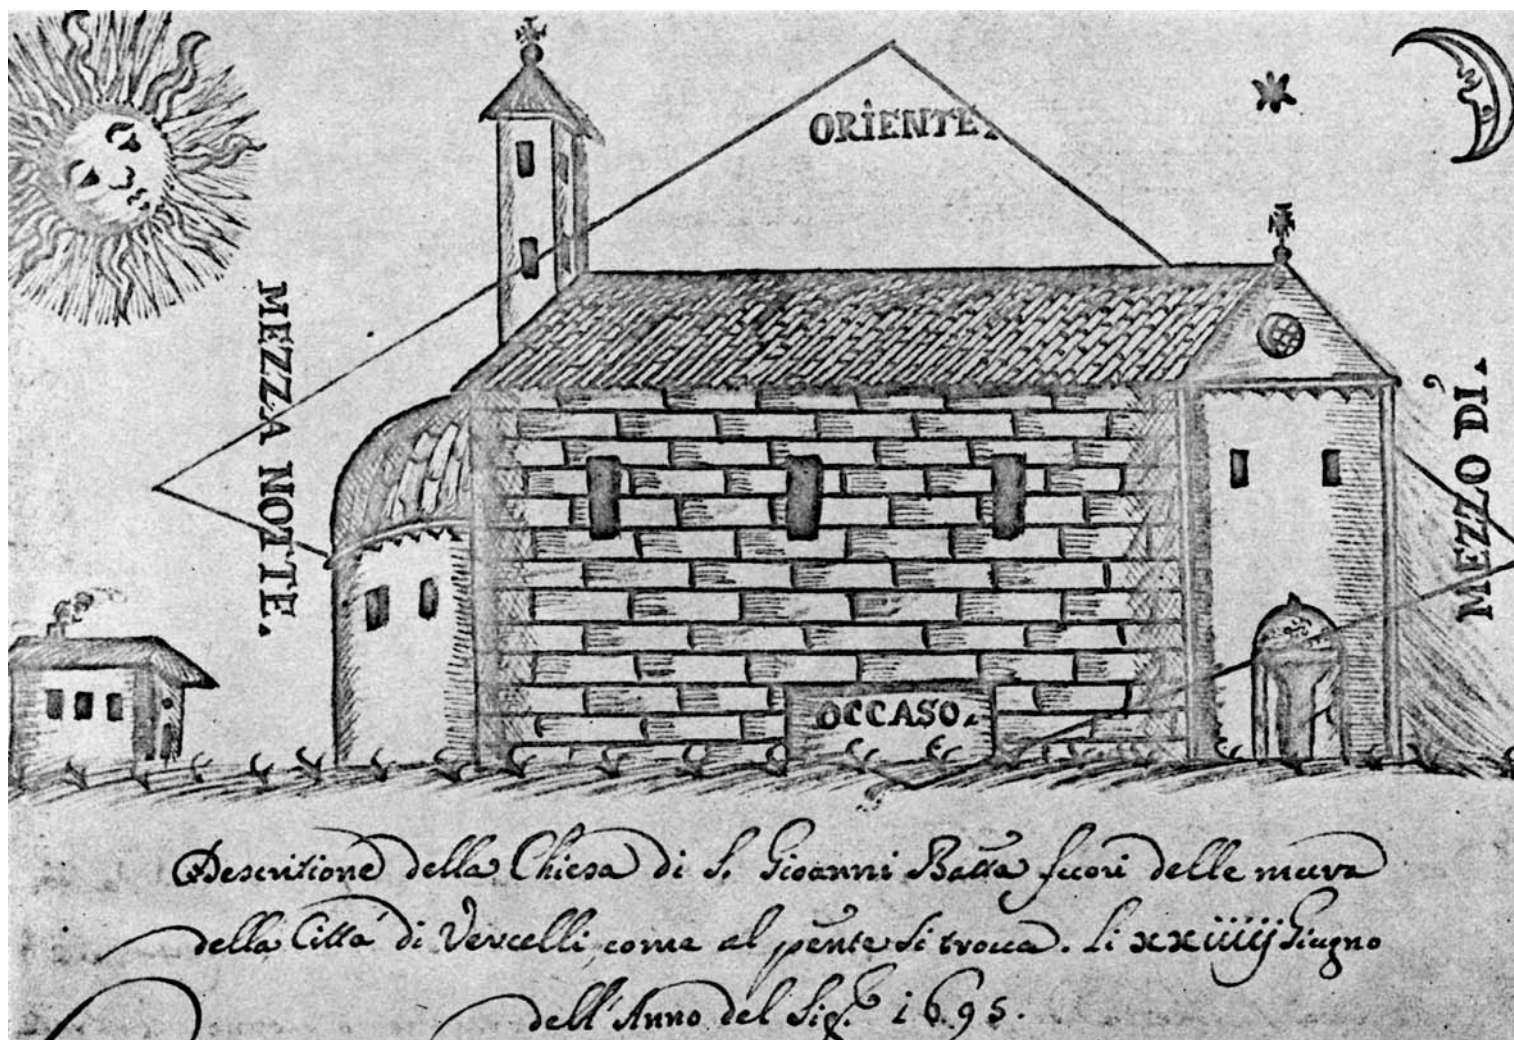 ORIENTE.
MEZZA NOTTE.
MEZZO DÍ.
OCCASO.
Descritione della Chiesa di S. Gioanni Batta fuori delle mura
della Città di Vercelli, come al pñte si troua. Li xxiiij Giugno
dell'Anno del Sig.re 1695.